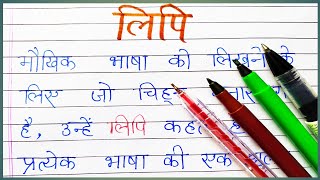 लिपि
मौखिक भाषा को लिखने के
लिए जो
है, उन्हें लिपि
प्रत्येक भाषा की एक